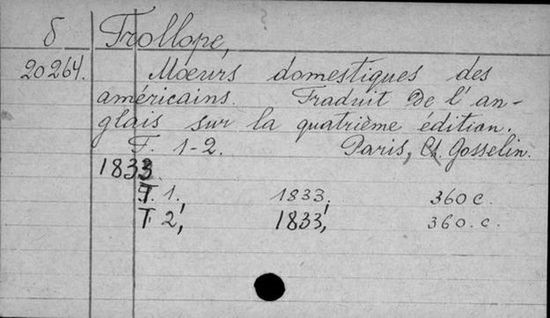 б Trollope,
20264. Mœurs domestiques des
américains. Traduit de l'an-
glais sur la quatrième édition.
T. 1-2. Paris, Ch. Gosselin.
1833
T. 1. 1833. 360 c.
T. 2, 1833, 360. c.